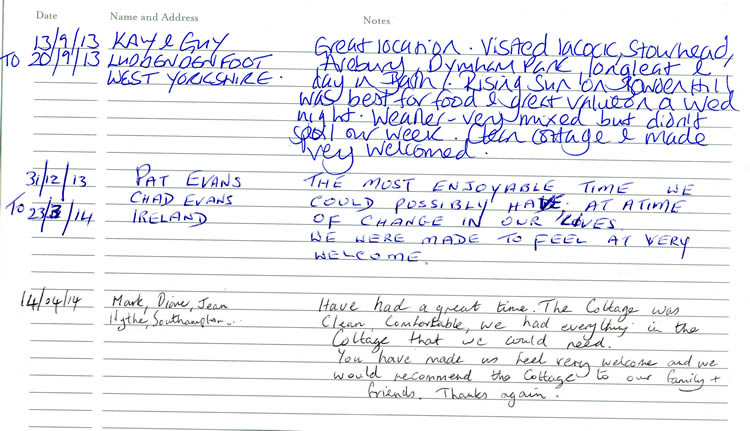 Date Name and Address Notes
13/9/13 KAY & GUY Great location. Visited Lacock, Stourhead,
TO 20/9/13 LUDDENDENFOOT Avebury, Dyrham Park longleat &
WEST YORKSHIRE. day in Bath! Rising Sun on Bowden Hill
was best for food & great value on a Wed
night. Weather - very mixed but didn't
spoil our week. Clean cottage & made
very welcomed.
31/12/13 PAT EVANS THE MOST ENJOYABLE TIME WE
TO CHAD EVANS COULD POSSIBLY HAVE AT A TIME
23/3/14 IRELAND OF CHANGE IN OUR LIVES.
WE WERE MADE TO FEEL AT VERY
WELCOME.
14/04/14 Mark, Diane, Jean Have had a great time. The Cottage was
Hythe, Southampton... Clean, Comfortable, we had everything in the
Cottage that we could need.
You have made us feel very welcome and we
would recommend the Cottage to our family +
friends. Thanks again.